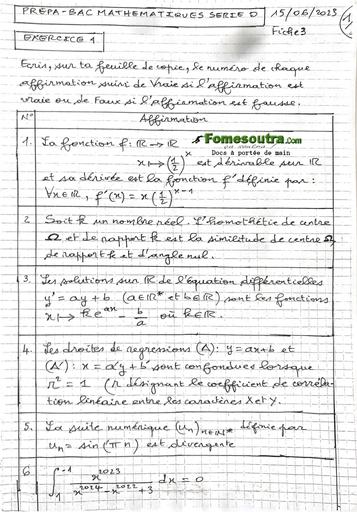 PREPA-BAC MATHEMATIQUES SERIE D 15/06/2023
1
Fiche 3
EXERCICE 1
Ecris, sur ta feuille de copie, le numéro de chaque
affirmation suivi de Vraie si l'affirmation est
vraie ou de Faux si l'affirmation est fausse.
N° Affirmation
1. La fonction f: ℝ → ℝ
Fomesoutra.com
Docs à portée de main
x ↦ (1/2)^x est dérivable sur ℝ
et sa dérivée est la fonction f' définie par:
∀x∈ℝ, f'(x) = x(1/2)^(x-1)
2 Soit k un nombre réel. L'homothétie de centre
Ω et de rapport k est la similitude de centre Ω,
de rapport k et d'angle nul.
3. Les solutions sur ℝ de l'équation différentielles
y' = ay + b (a∈ℝ* et b∈ℝ) sont les fonctions
x ↦ ke^(ax) - b/a où k∈ℝ.
4. Les droites de regressions (Δ): y = ax+b et
(Δ'): x = a'y + b' sont confondues lorsque
r² = 1 (r désignant le coefficient de corréla-
tion linéaire entre les caractères X et Y.
5. La suite numérique (uₙ)n∈ℕ* définie par
uₙ = sin(πn) est divergente
6 ∫₁^(-1) x^2023/(x^2024 - x^2022 + 3) dx = 0